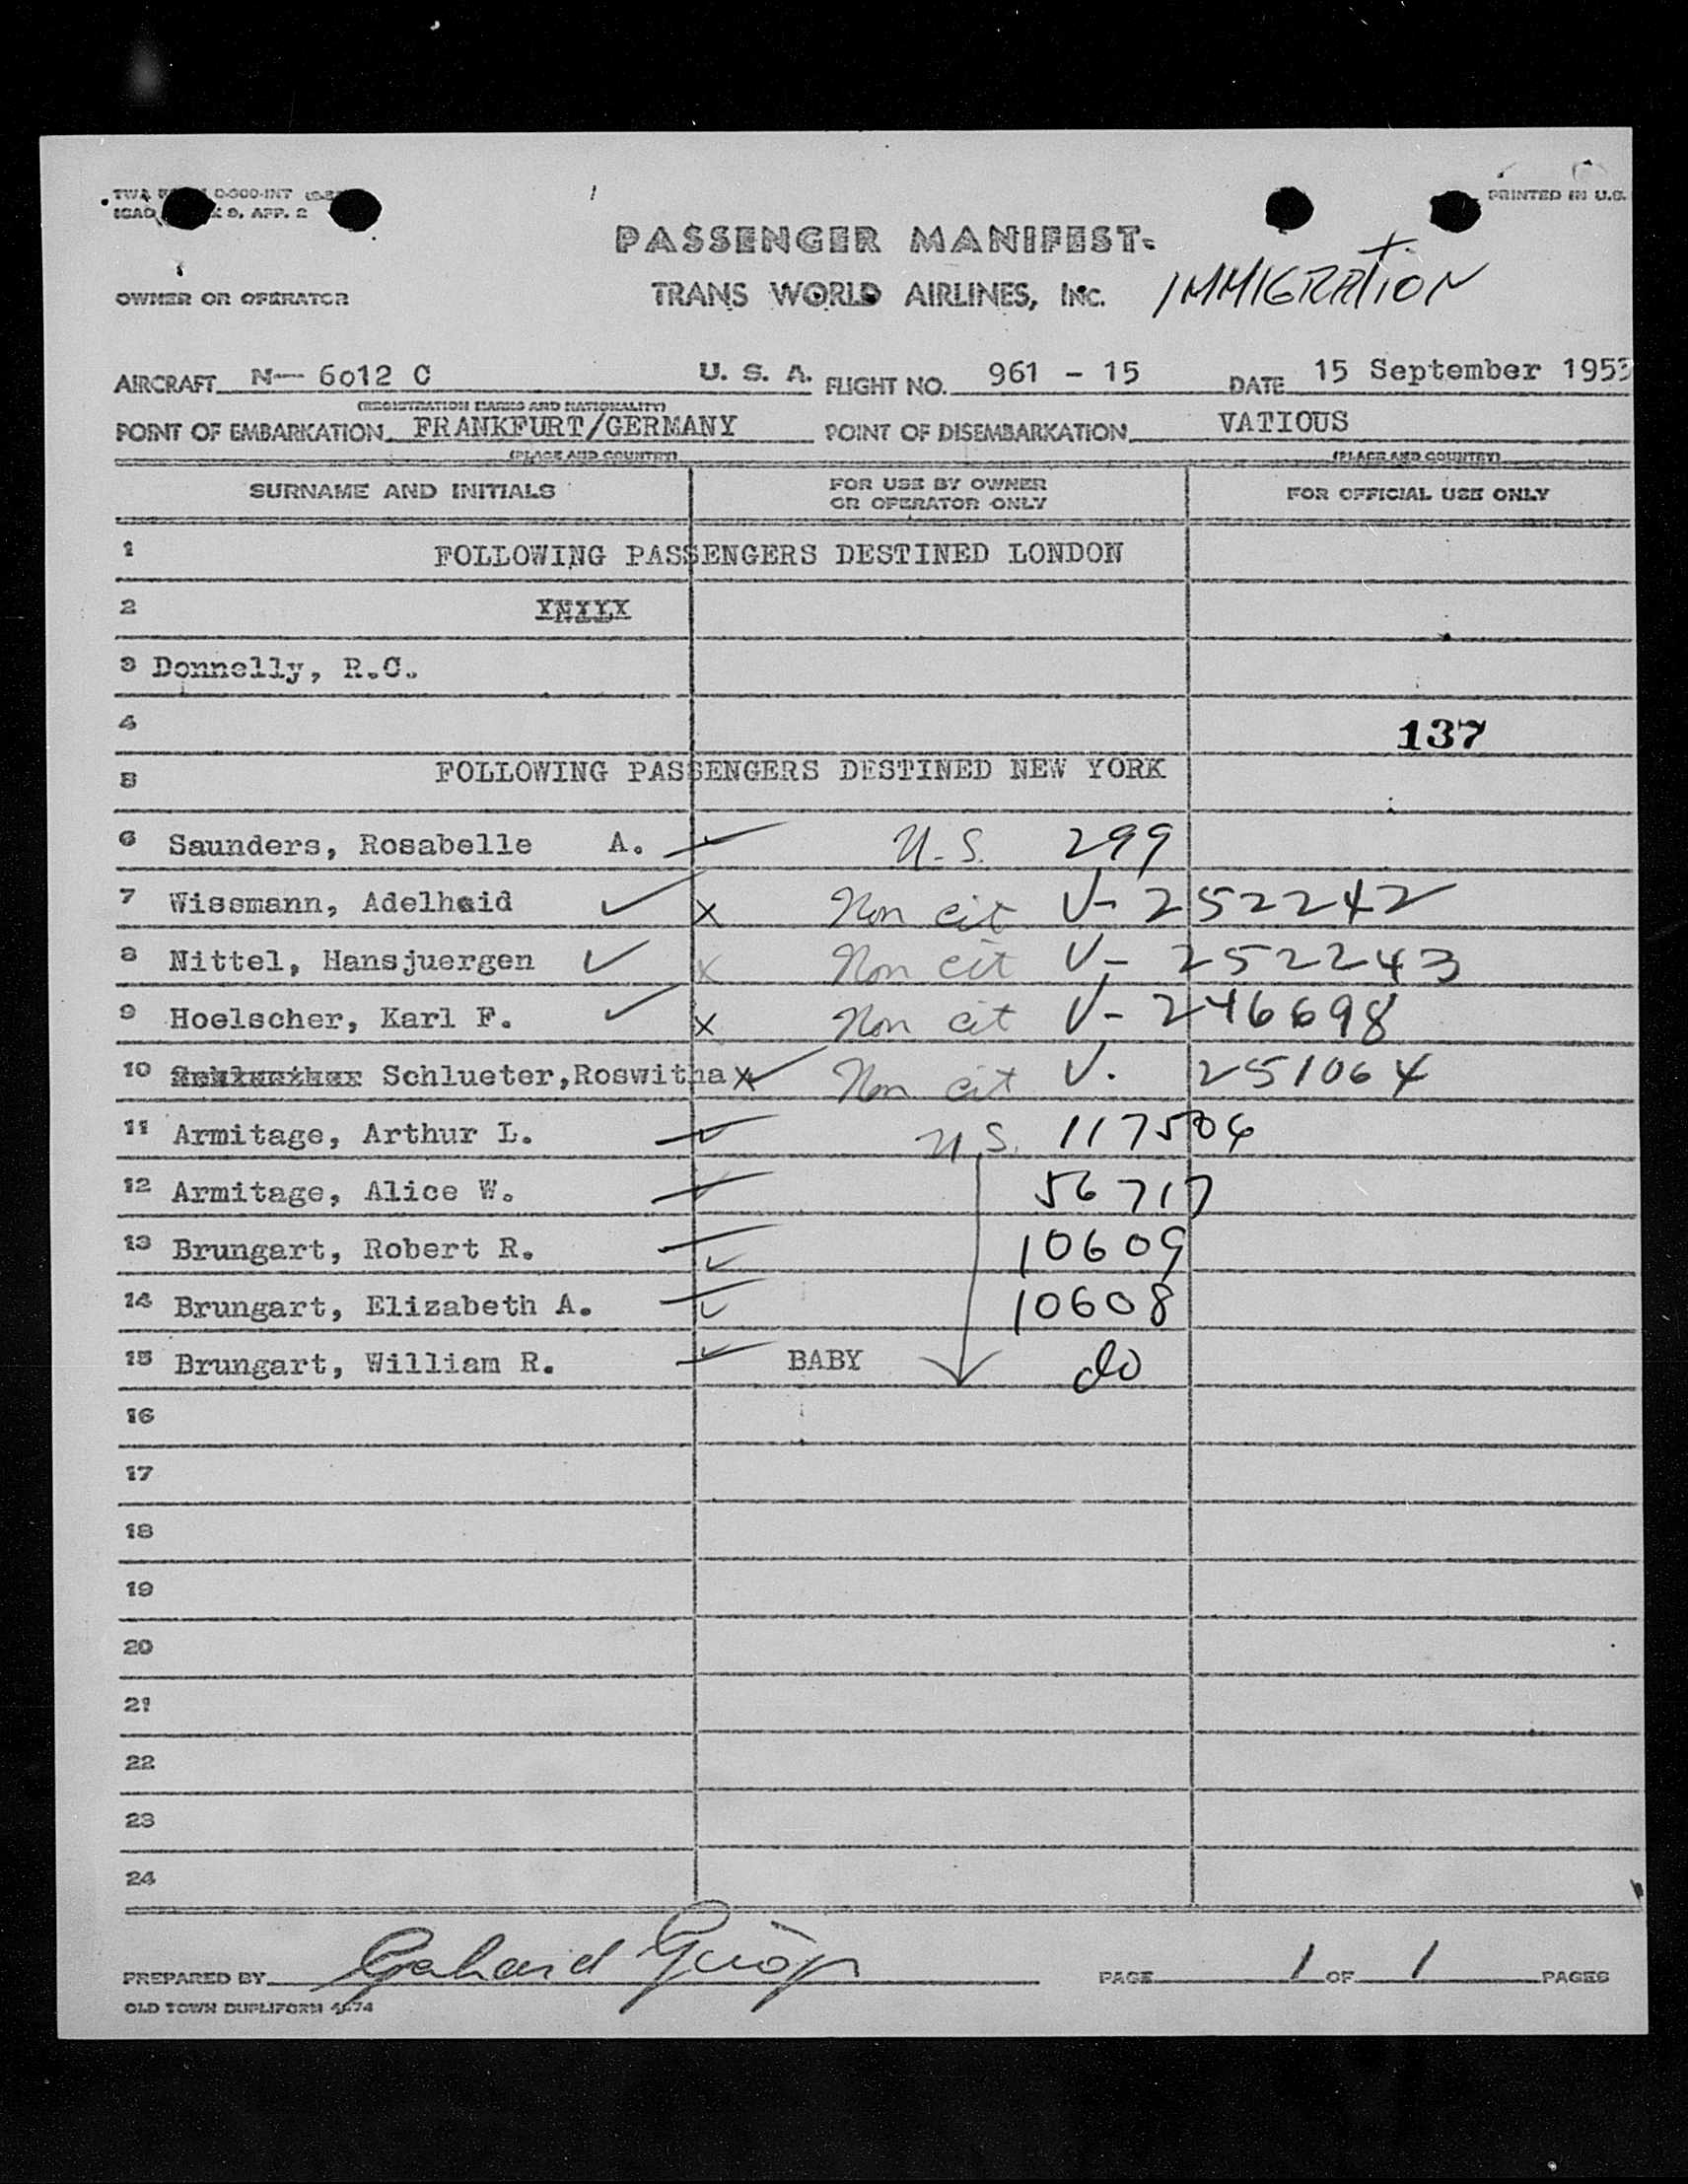 TWA 0-300-INT
ICAO 9, APP. 2
PRINTED IN U.S.
PASSENGER MANIFEST
IMMIGRATION
OWNER OR OPERATOR TRANS WORLD AIRLINES, INC.
AIRCRAFT N-- 6012 C U. S. A. FLIGHT NO. 961 - 15 DATE 15 September 1953
(REGISTRATION MARKS AND NATIONALITY)
POINT OF EMBARKATION FRANKFURT/GERMANY POINT OF DISEMBARKATION VATIOUS
(PLACE AND COUNTRY) (PLACE AND COUNTRY)
SURNAME AND INITIALS FOR USE BY OWNER OR OPERATOR ONLY FOR OFFICIAL USE ONLY
1 FOLLOWING PASSENGERS DESTINED LONDON
2
3 Donnelly, R.C.
4 137
5 FOLLOWING PASSENGERS DESTINED NEW YORK
6 Saunders, Rosabelle A. U.S. 299
7 Wissmann, Adelheid x Non cit V-252242
8 Nittel, Hansjuergen x Non cit V-252243
9 Hoelscher, Karl F. x Non cit V-246698
10 Schlueter,Roswitha x Non cit V. 251064
11 Armitage, Arthur L. U.S. 117506
12 Armitage, Alice W. 56717
13 Brungart, Robert R. 10609
14 Brungart, Elizabeth A. 10608
15 Brungart, William R. BABY do
16
17
18
19
20
21
22
23
24
PREPARED BY PAGE 1 OF 1 PAGES
OLD TOWN DUPLIFORM